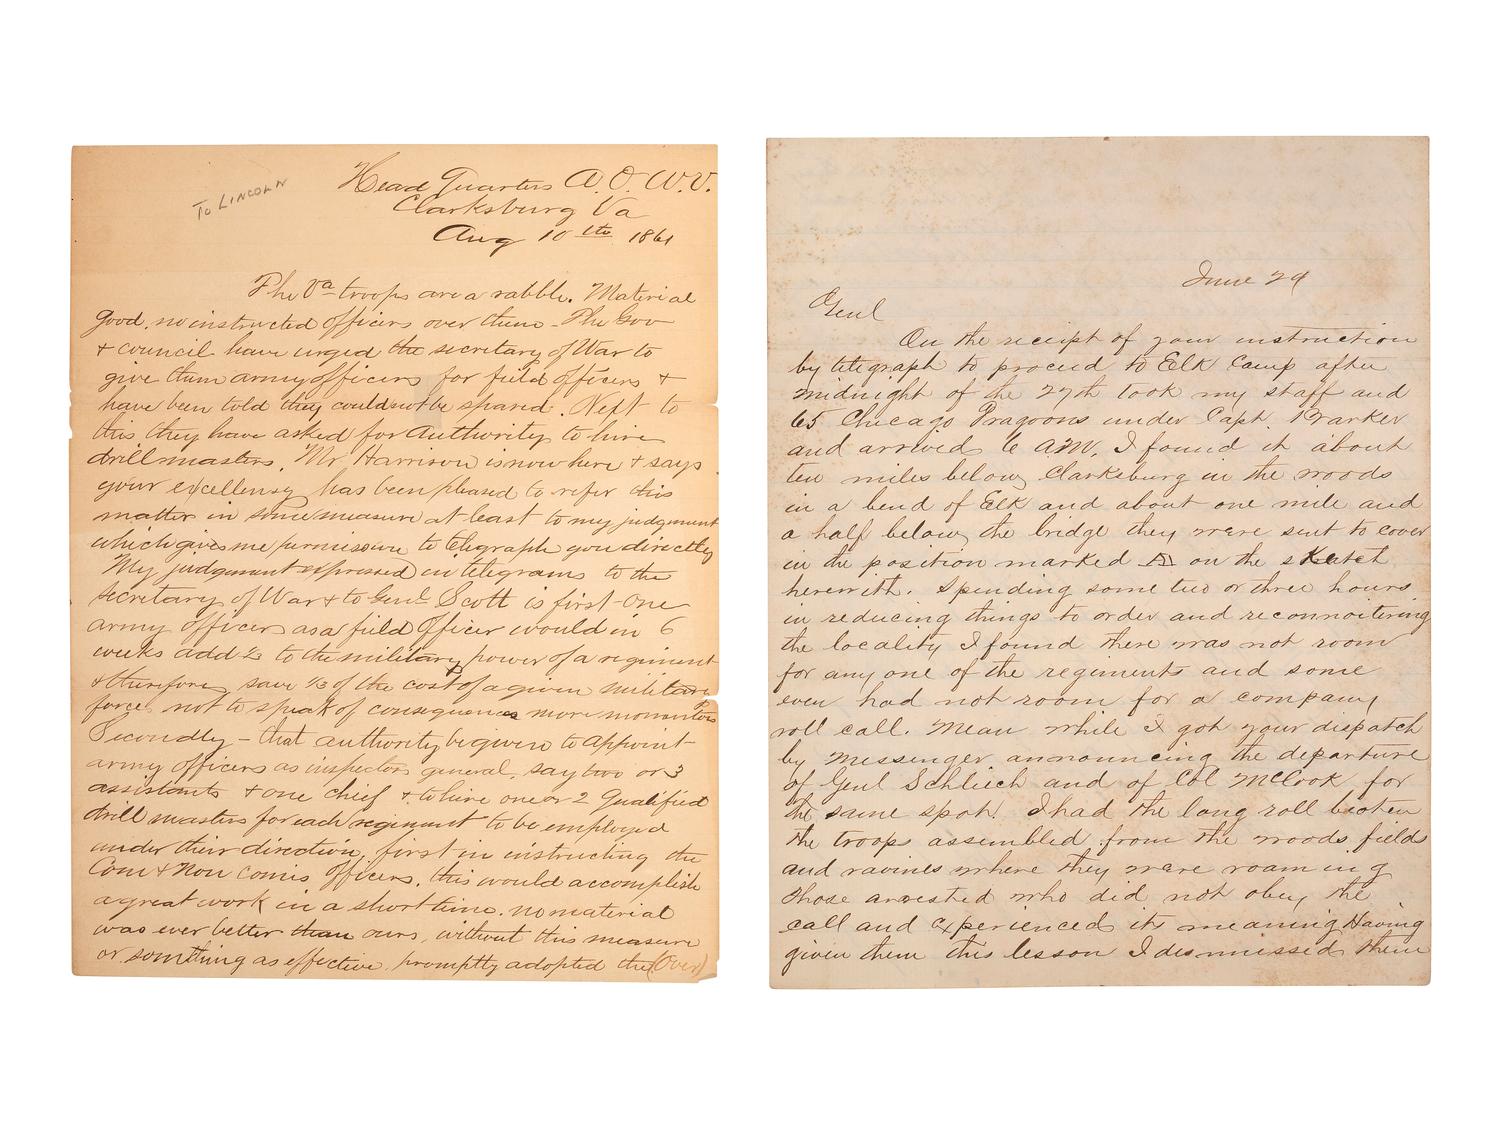 To LINCOLN
Head Quarters A. O. W. V.
Clarksburg Va
Aug 10th 1861
The Va troops are a rabble. Material
good, no instructed officers over them - The Gov
+ council have urged the secretary of War to
give them army officers for field officers +
have been told they could not be spared. Next to
this they have asked for Authority to hire
drill masters. Mr Harrison is now here + says
your excellency has been pleased to refer this
matter in some measure at least to my judgement
which gives me permission to telegraph you directly
My judgement expressed in telegrams to the
secretary of War + to Genl Scott is first - One
army officer as a field officer would in 6
weeks add 1/2 to the military power of a regiment
+ therefore save 1/3 of the cost of a given military
force not to speak of consequences more momentous
Secondly - that authority be given to appoint
army officers as inspectors general, say two or 3
assistants + one chief + to hire one or 2 qualified
drill masters for each regiment to be employed
under their direction, first in instructing the
Com + Non comis officers, this would accomplish
a great work in a short time. no material
was ever better than ours, without this measure
or something as effective, promptly adopted the (Over)
June 29
Genl
On the receipt of your instruction
by telegraph to proceed to Elk Camp after
midnight of the 27th took my staff and
65 Chicago Dragoons under Capt. Barker
and arrived 6 AM. I found it about
ten miles below Clarksburg in the woods
in a bend of Elk and about one mile and
a half below the bridge they were sent to cover
in the position marked A on the sketch
herewith. Spending some two or three hours
in reducing things to order and reconnoitering
the locality I found there was not room
for any one of the regiments and some
even had not room for a company
roll call. Mean while I got your dispatch
by messenger announcing the departure
of Genl Schleich and of Col McCook for
the same spot. I had the long roll beaten
the troops assembled from the woods fields
and ravines where they were roaming
those arrested who did not obey the
call and experienced its meaning Having
given them this lesson I dismissed them